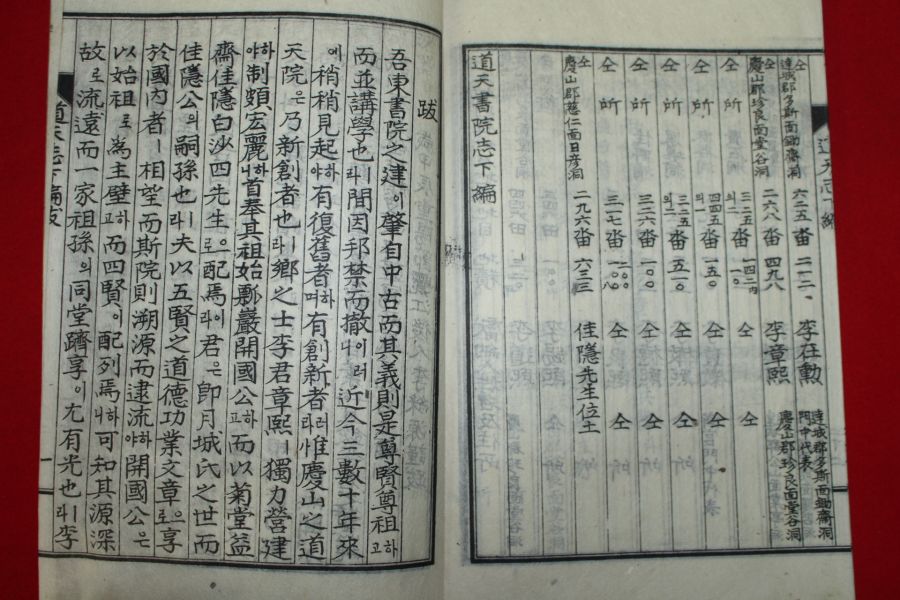 達城郡多斯面鋤齋洞 六二五 畓 二一二 李在勳 達城郡多斯面鋤齋洞 門中代表
慶山郡珍良面堂谷洞 二六八 畓 四九八 李章熙 慶山郡珍良面堂谷洞
仝 所 三二五의二 畓 仝 仝
仝 所 四四五의二 畓 一五〇 仝 仝
仝 所 三二五 畓 五一〇 仝 仝
仝 所 三二六 畓 一〇〇 仝 仝
仝 所 三一七 畓 仝 仝
慶山郡慈仁面日彦洞 二九六 畓 六三三 佳隱先生位土
道天書院志下編
跋
吾東書院之建이肇自中古而其義則是尊賢尊祖고
而並講學也라間因邦禁而撤이러니近今三數十年來
에稍稍見起야有復舊者며有創新者라惟慶山之道
天院은乃新創者也라鄕之士李君章熙獨力營建
야制頗宏麗니首奉其祖始瓢巖開國公고而以菊堂益
齋佳隱白沙四先生으로配焉이러라君은卽月城氏之世而
佳隱公의嗣孫也라夫以五賢之道德功業文章으로享
於國內者相望而斯院則溯源而逮流야開國公은
以始祖로爲主壁고而四賢이配列焉니可知其源深
故로流遠而一家祖孫의同堂躋享이尤有光也라李